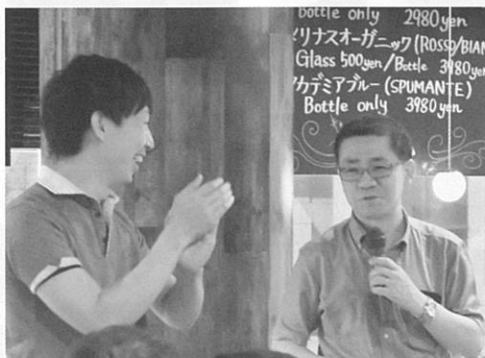 Bottle only 2980yen
メリナスオーガニック(ROSSO/BIAN
Glass 500yen/Bottle 3980yen
アカデミアブルー(SPUMANTE)
Bottle only 3980yen